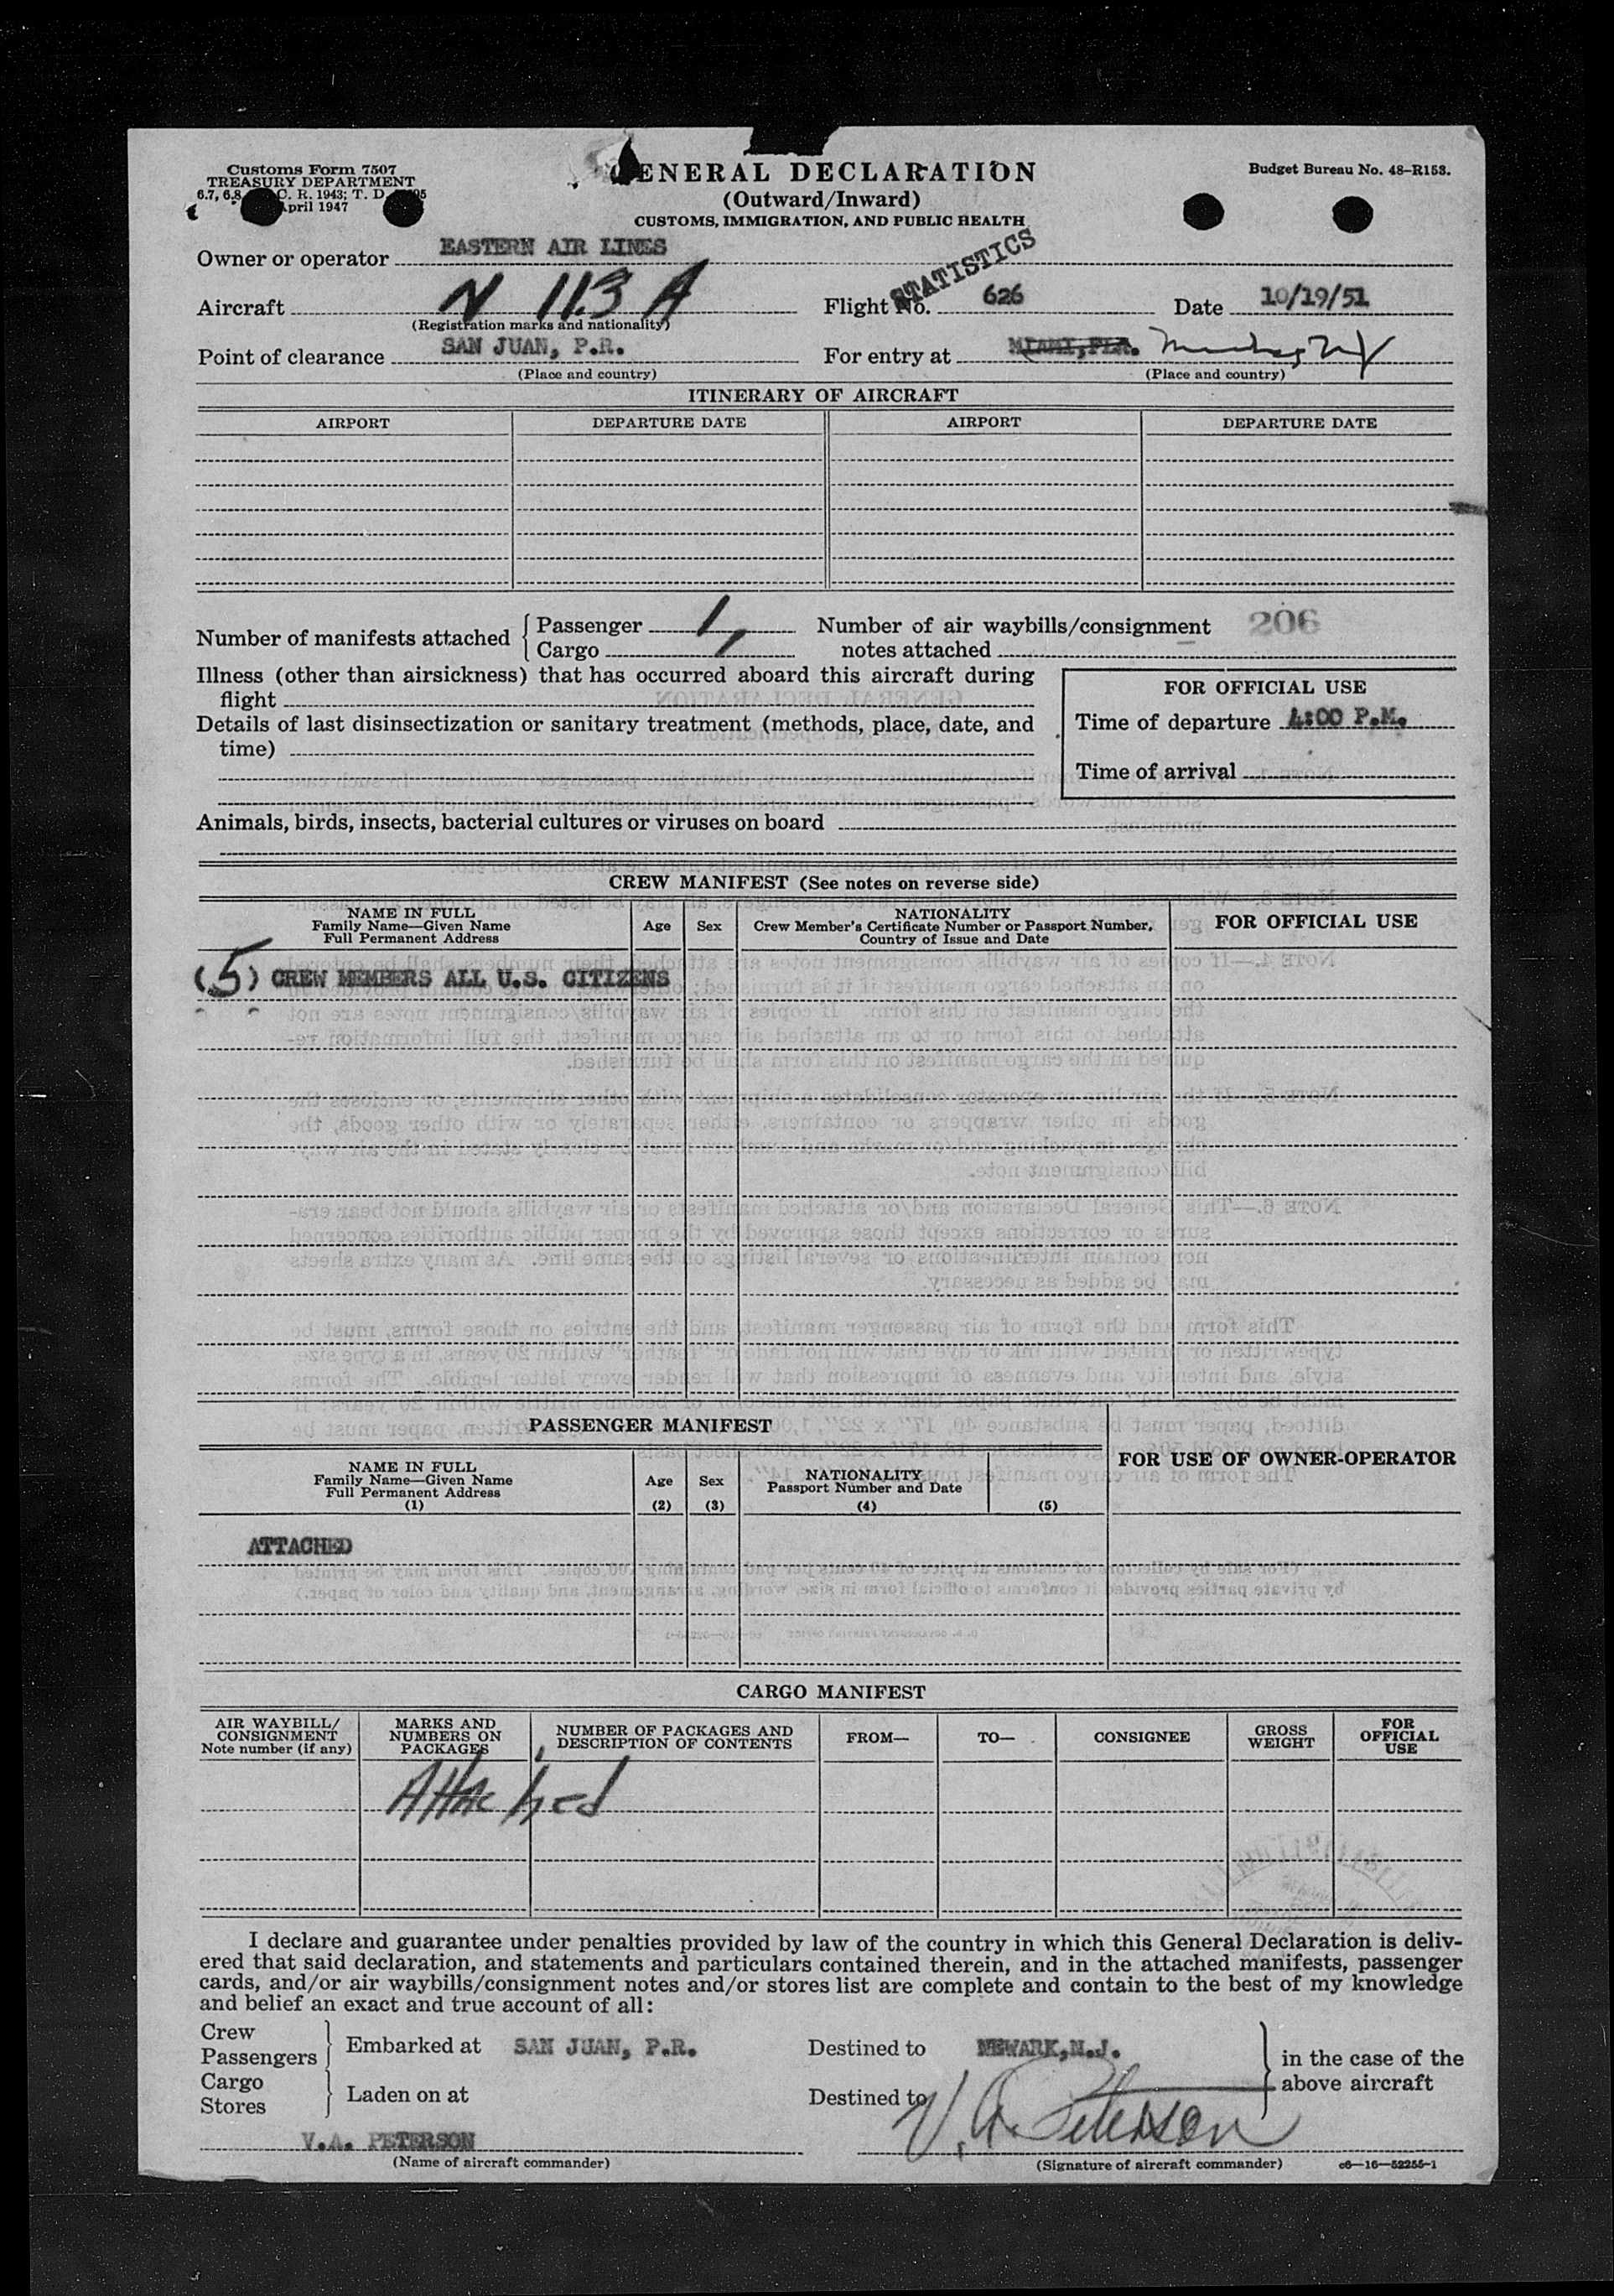 Customs Form 7507
TREASURY DEPARTMENT
C. R. 1943; T. D.
April 1947
GENERAL DECLARATION
(Outward/Inward)
CUSTOMS, IMMIGRATION, AND PUBLIC HEALTH
Budget Bureau No. 48-R153.
STATISTICS
Owner or operator EASTERN AIR LINES
Aircraft N 113 A Flight No. 626 Date 10/19/51
(Registration marks and nationality)
Point of clearance SAN JUAN, P.R. For entry at MIAMI, FLA.
(Place and country) (Place and country)
ITINERARY OF AIRCRAFT
AIRPORT DEPARTURE DATE AIRPORT DEPARTURE DATE
Number of manifests attached Passenger 1 Cargo 1
Number of air waybills/consignment notes attached
206
Illness (other than airsickness) that has occurred aboard this aircraft during
flight
Details of last disinsectization or sanitary treatment (methods, place, date, and
time)
FOR OFFICIAL USE
Time of departure 4:00 P.M.
Time of arrival
Animals, birds, insects, bacterial cultures or viruses on board
CREW MANIFEST (See notes on reverse side)
NAME IN FULL
Family Name—Given Name
Full Permanent Address
Age
Sex
NATIONALITY
Crew Member's Certificate Number or Passport Number,
Country of Issue and Date
FOR OFFICIAL USE
(5) CREW MEMBERS ALL U.S. CITIZENS
PASSENGER MANIFEST
NAME IN FULL
Family Name—Given Name
Full Permanent Address
(1)
Age
(2)
Sex
(3)
NATIONALITY
Passport Number and Date
(4)
(5)
FOR USE OF OWNER-OPERATOR
ATTACHED
CARGO MANIFEST
AIR WAYBILL/
CONSIGNMENT
Note number (if any)
MARKS AND
NUMBERS ON
PACKAGES
NUMBER OF PACKAGES AND
DESCRIPTION OF CONTENTS
FROM—
TO—
CONSIGNEE
GROSS
WEIGHT
FOR
OFFICIAL
USE
Attached
I declare and guarantee under penalties provided by law of the country in which this General Declaration is deliv-
ered that said declaration, and statements and particulars contained therein, and in the attached manifests, passenger
cards, and/or air waybills/consignment notes and/or stores list are complete and contain to the best of my knowledge
and belief an exact and true account of all:
Crew
Passengers
Embarked at SAN JUAN, P.R. Destined to NEWARK, N.J.
Cargo
Stores
Laden on at Destined to
in the case of the
above aircraft
V.A. PETERSON V. A. Peterson
(Name of aircraft commander) (Signature of aircraft commander) c6—16—52255-1